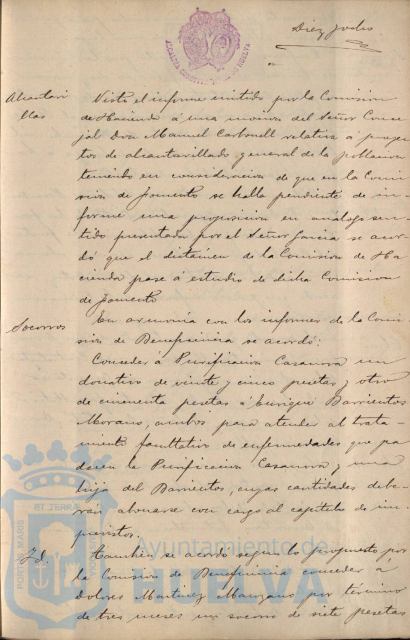 Diez y ocho
ALCALDIA CONSTITUCIONAL DE HUELVA
Alcantari
llas
Visto el informe emitido por la Comision
de Hacienda á una mocion del Señor Conce
jal Don Manuel Carbonell relativa á proyec
tos de alcantarillado general de la poblacion
teniendo en consideracion de que en la Comi
sion de Fomento se halla pendiente de in-
forme una proposicion en análogo sen-
tido presentada por el Señor Garcia se acor
dó que el dictámen de la Comision de Ha
cienda pase á estudio de dicha Comision
de Fomento
Socorros
En armonia con los informes de la Comi
sion de Beneficencia se acordó:
Conceder á Purificacion Casanova un
donativo de veinte y cinco pesetas y otro
de cincuenta pesetas á Enrique Barrientos
Morano, ambos para atender al trata-
miento facultativo de enfermedades que pa
decen la Purificacion Casanova y una
hija del Barrientos, cuyas cantidades debe-
rán abonarse con cargo al capitulo de im-
previstos.
Id.
Tambien se acordó segun lo propuesto por
la Comision de Beneficencia conceder á
Dolores Martinez Manzano por término
de tres meses un socorro de siete pesetas
PORTUS MARIS
ET TERRÆ
Ayuntamiento de
HUELVA